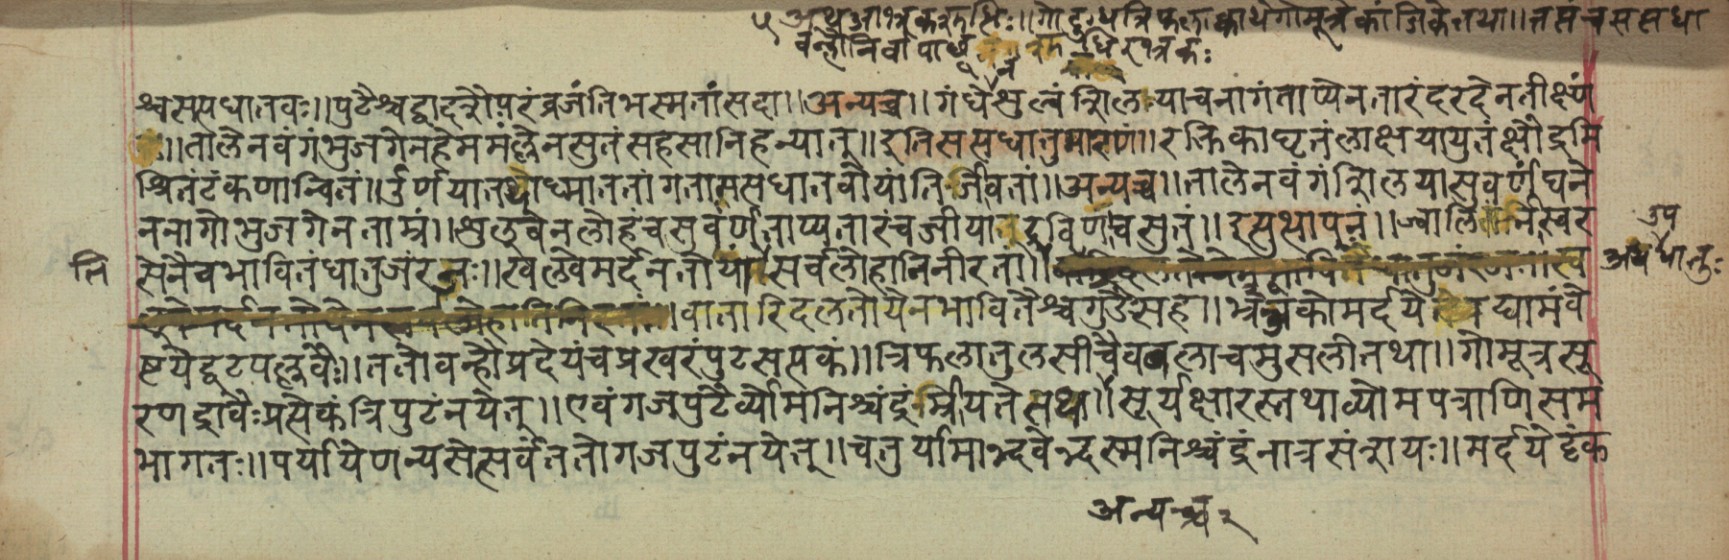 ५ अथ अभ्रकशुद्धिः॥ गोदुग्धत्रिफलाक्वाथेगोमूत्रेकांजिकेतथा॥ तप्तंचसप्तधा
वन्हौनिर्वापाच्छु
श्चसप्तधातवः॥ पुटैश्चद्वादशैपरंव्रजंतिभस्मतांसदा॥ अन्यच्च॥ गंधैशुल्वंशिलायाचनागंताप्येनतारंदरदेनतीक्ष्णं
॥ तालेनवंगंभुजगेनहेममंल्लेनसुतंसहसानिहन्यात्॥ इतिसप्तधातुमारणं॥ रक्तिकाघृतंलाक्षयायुतंक्षौद्रमि
श्रितंटंकणान्वितं॥ उर्णयातथाध्मातातांगतासप्तधातवोयांतिजीवतां॥ अन्यच्च॥ तालेनवंगंशिलयासुवर्णंघने
ननागोभुजगेनताम्रं॥ शुलुवेनलोहंचसुवर्णताप्यतारंचजीयात्द्रविणचसुतं॥ इत्युत्थापनं॥ ज्वालि र्निस्वर
सेनैवभावितंधातुजंरजः॥ खल्वेमर्दनतोयांसर्वलोहानिनीरता॥
वातारिदलतोयेनभावितैश्चगुडैसह॥ मर्दये द्यामंवे
ष्टयेद्वटपल्लवैः॥ ततोवन्हौप्रदेयंचप्रखरंपुटसप्तकं॥ त्रिफलातुलसीचैवबलाचमुसलीतथा॥ गोमूत्रसू
रणद्रावैःप्रत्सैकंत्रिपुटंनयेत्॥ एवंगजपुटैर्व्योमनिश्चंद्रंम्रियतेतथा॥ सूर्यक्षारस्तथाव्योमपत्राणिसम
भागतः॥ पर्यायेणन्यसेत्सर्वंततोगजपुटंनयेत्॥ चतुर्यामाभ्दवेभ्दस्मनिश्चंद्रंनात्रसंशयः॥ मर्दयेट्टंक
नि
उप
अथ धातुः
अन्यच्च२